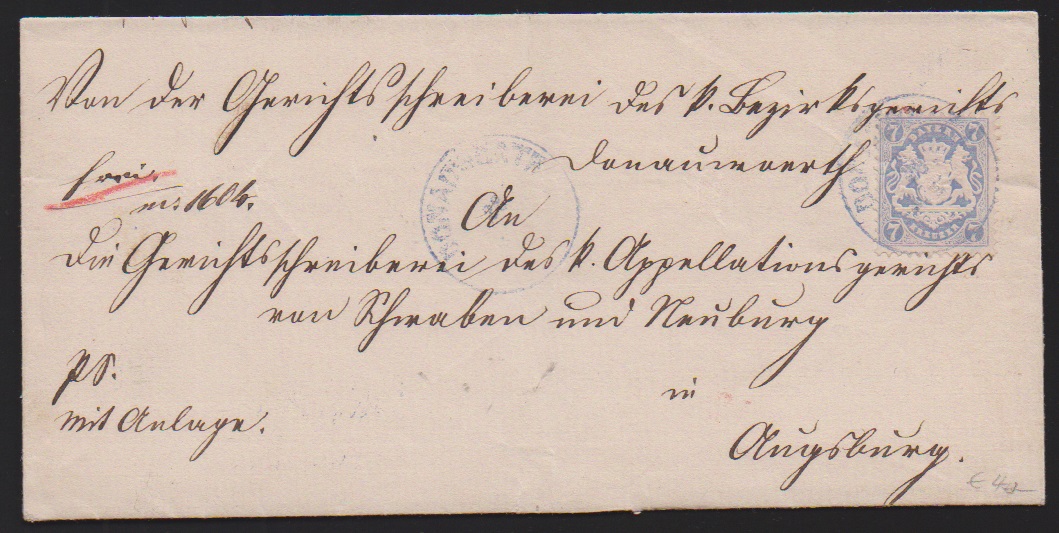 Von der Gerichtsschreiberei des k. Bezirksgerichts
Donauwoerth
frei.
An
Die Gerichtsschreiberei des k. Appellationsgerichts
von Schwaben und Neuburg
PS.
mit Anlage.
in
Augsburg.
7 BAYERN 7
7 KREUZER 7